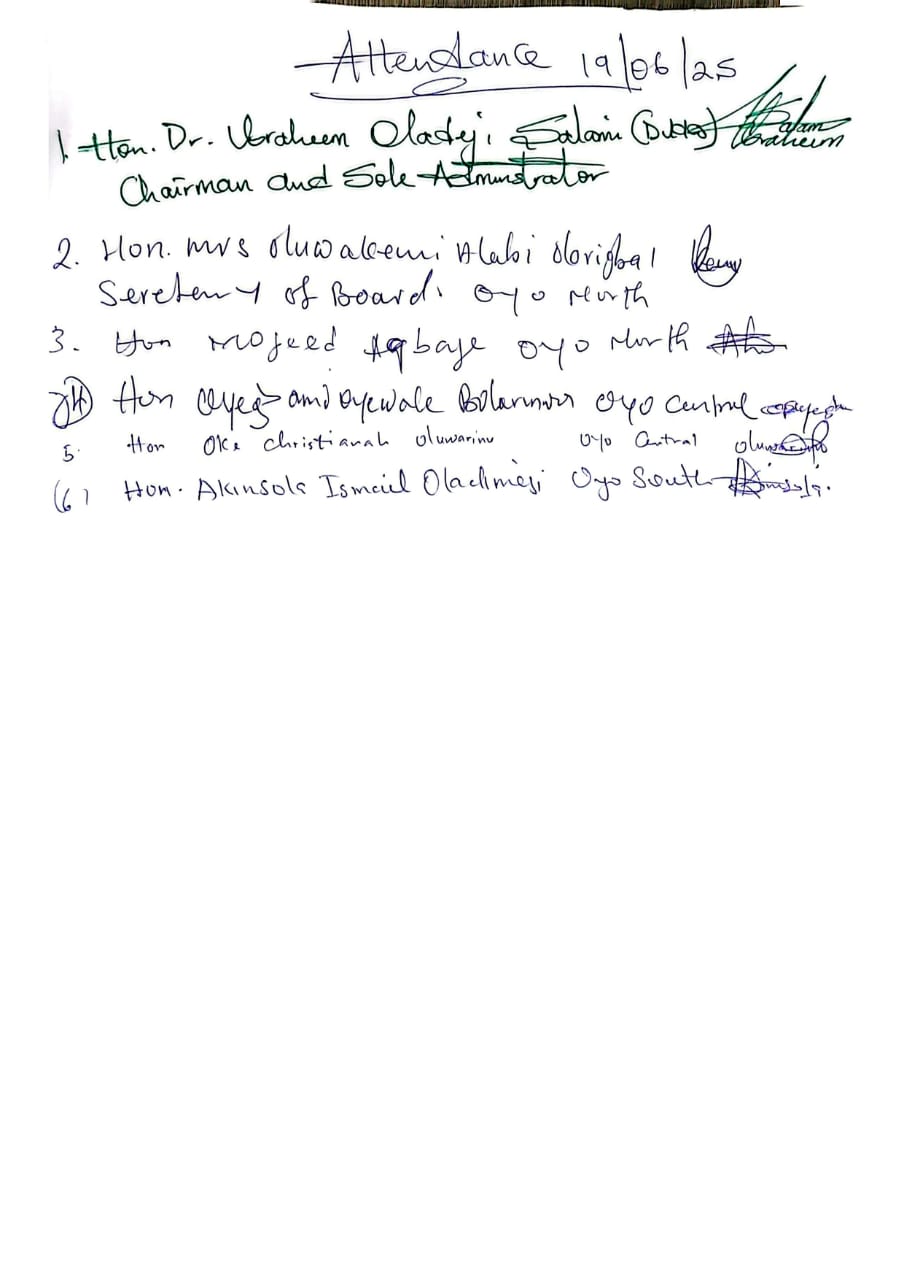 Attendance 19/06/25
1. Hon. Dr. Ibraheem Oladeji Salami Salami Ibraheem
Chairman and Sole Adminstrator
2. Hon. Mrs Oluwakemi Alabi Olorigbal Kemy
Seretemy of Board. Oyo North
3. Hon Mojeed Agbaje Oyo North
Hon Oyewale Oyo Central
5. Hon Oke Christianah Oluwarinu Oyo Central
(6) Hon. Akinsola Ismail Oladimeji Oyo South